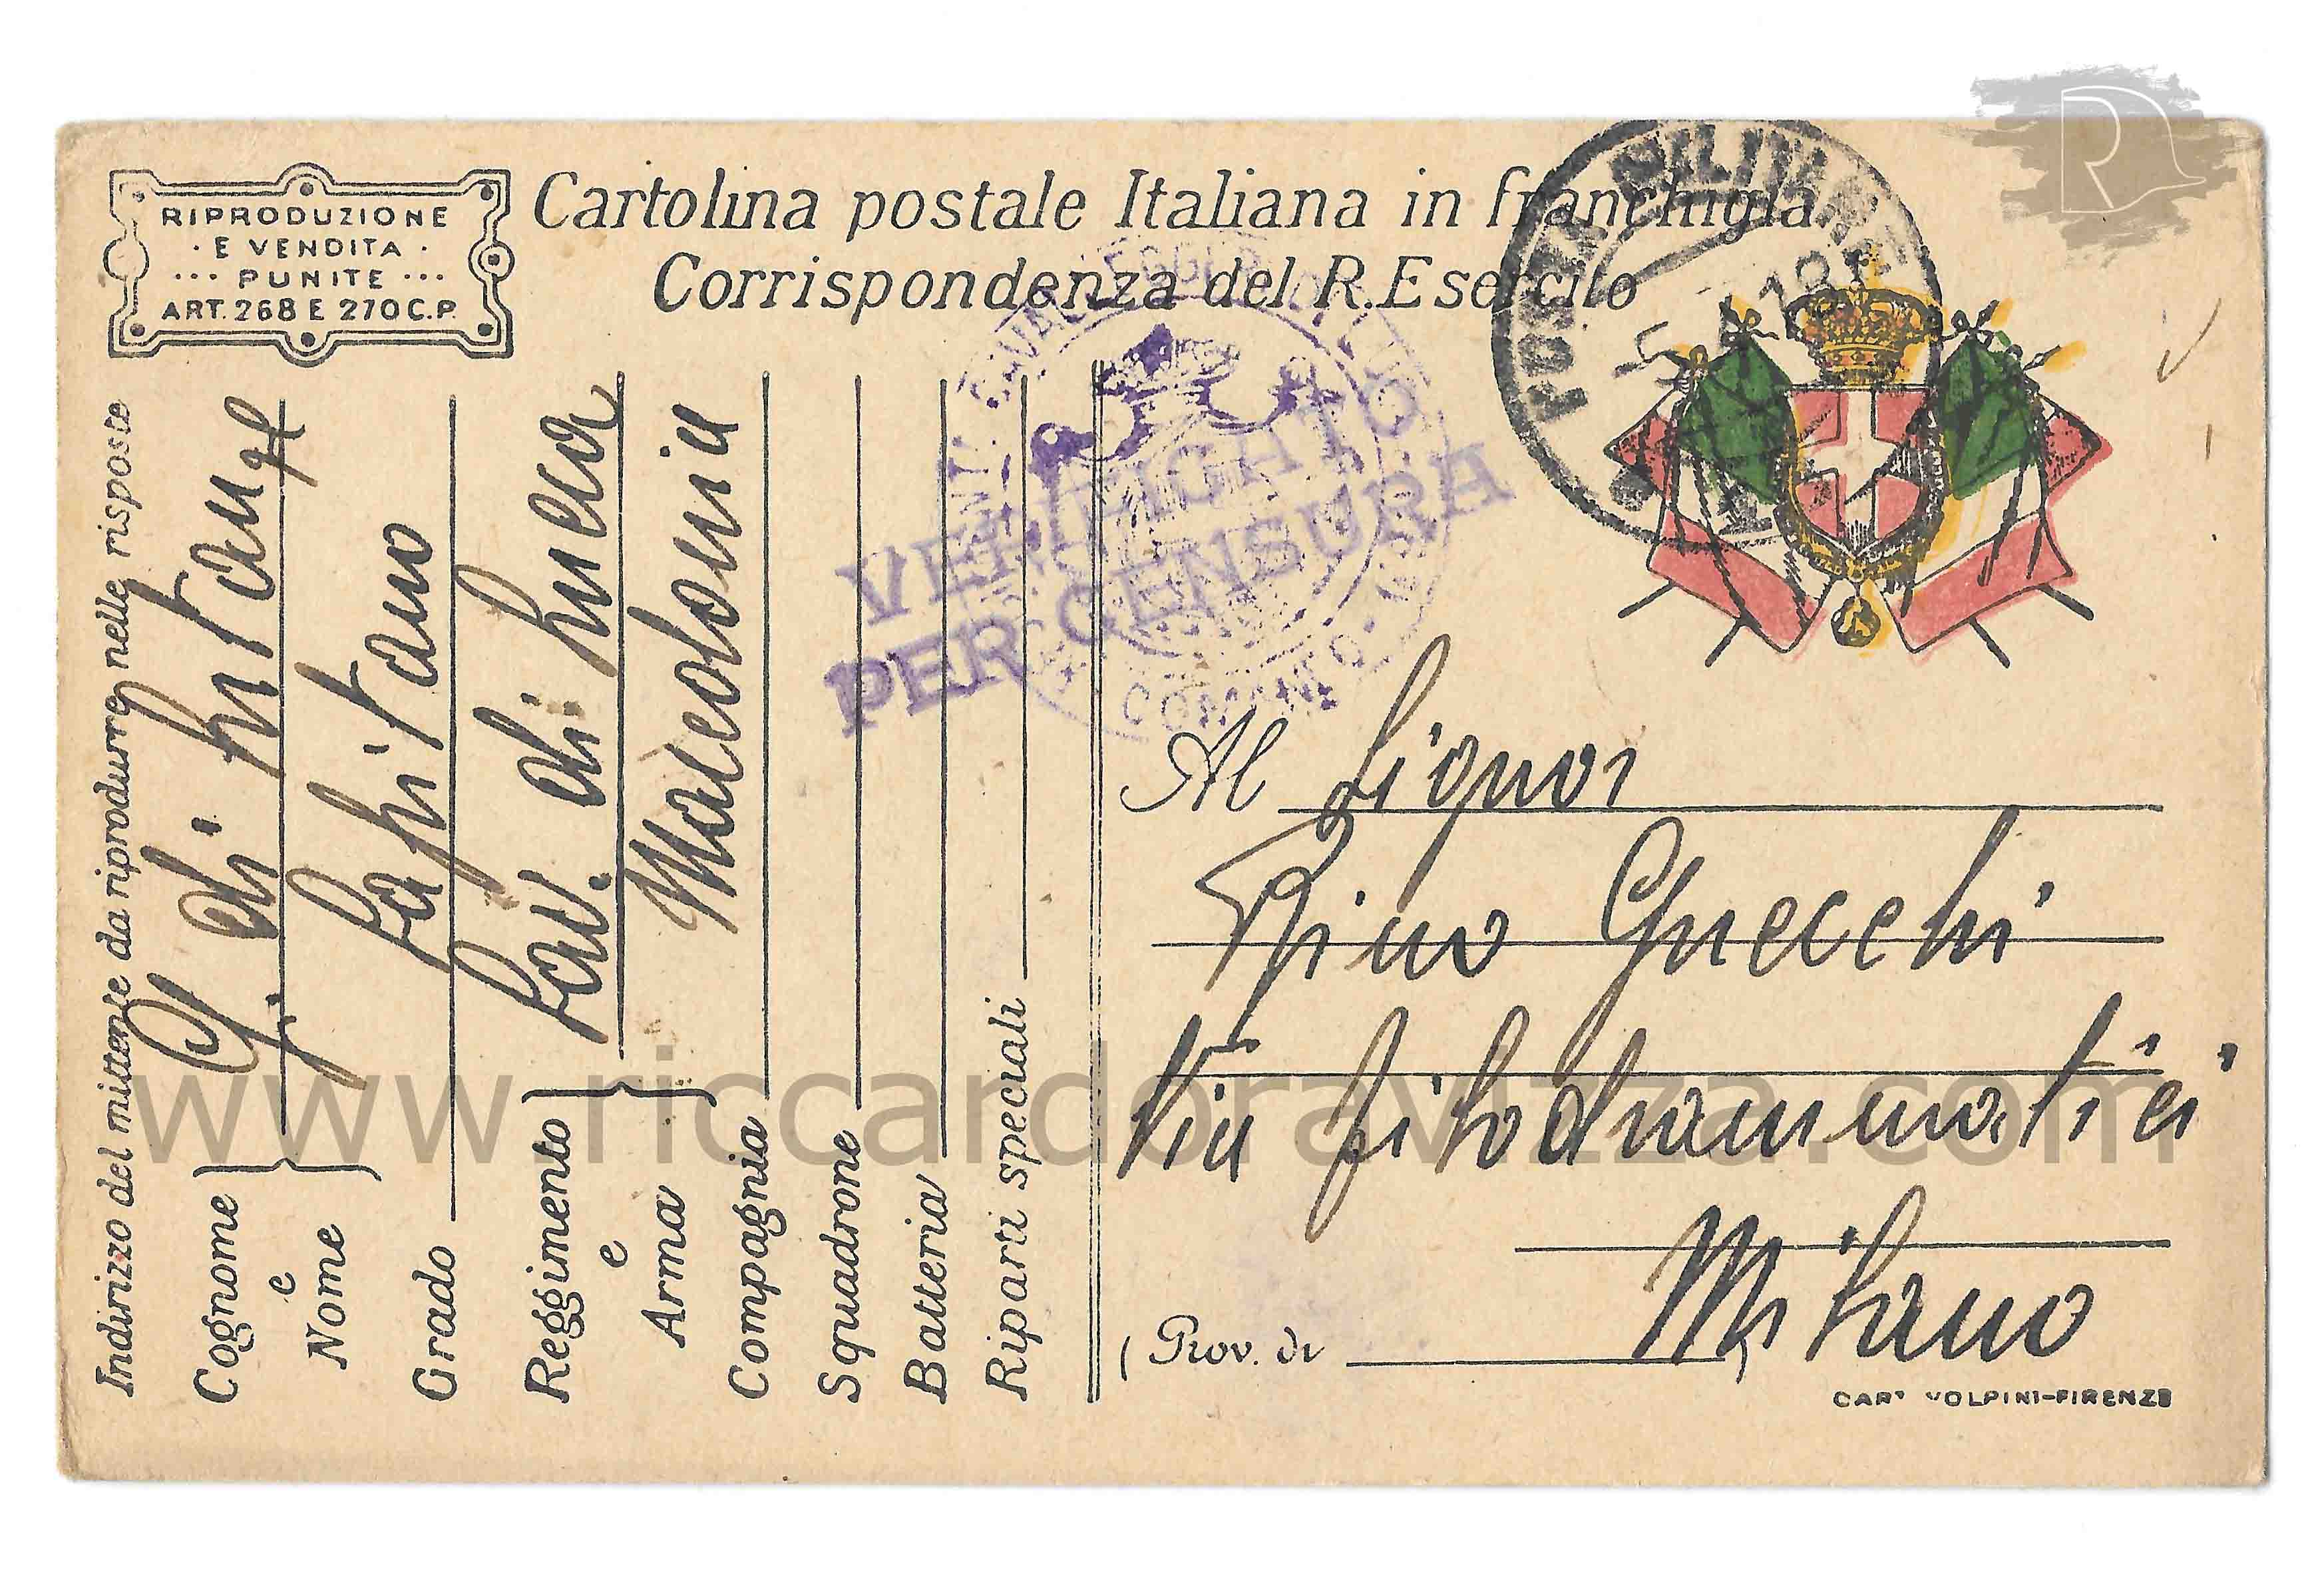 RIPRODUZIONE
· E VENDITA ·
··· PUNITE ···
ART. 268 E 270 C.P.
Cartolina postale Italiana in franchigia
Corrispondenza del R. Esercito
POSTA MILITARE
18
VERIFICATO
PER CENSURA
COMANDO
Indirizzo del mittente da riprodurre nelle risposte
Cognome e Nome
G. di
Grado Capitano
Reggimento e Arma Cav. di Lucca
Macedonia
Compagnia
Squadrone
Batteria
Riparti speciali
Al Signor
Pino Gnecchi
Via Filodrammatici
Milano
(Prov. di )
CAR. VOLPINI-FIRENZE
www.riccardoravizza.com